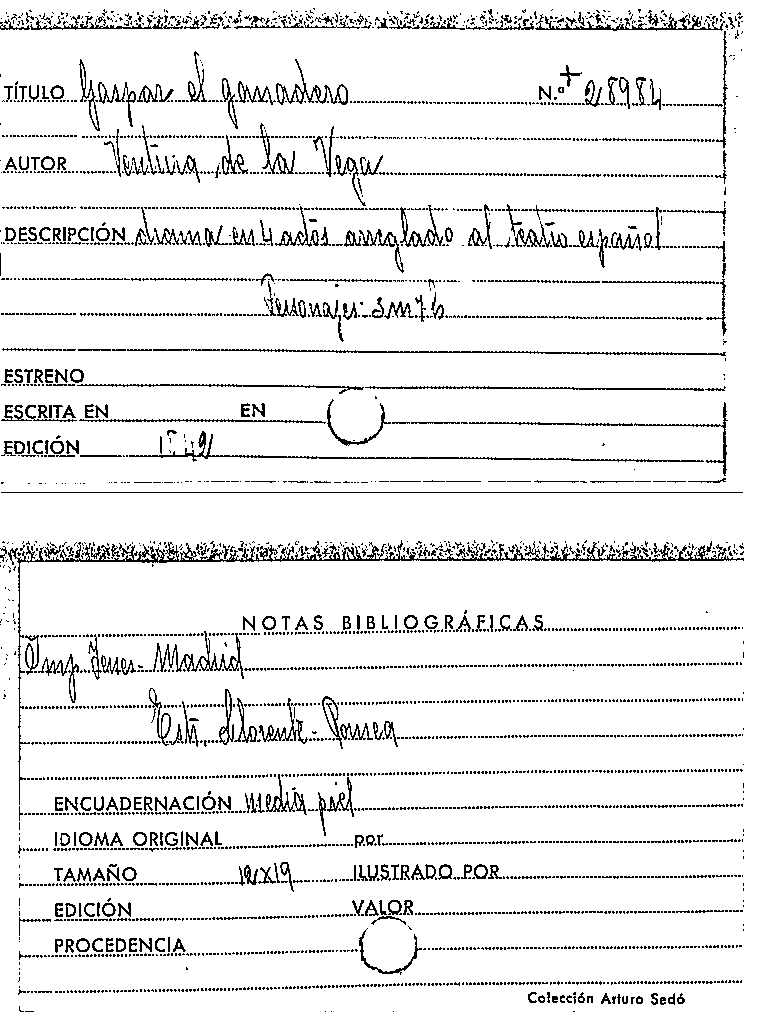 TÍTULO Gaspar el ganadero N.º + 28984
AUTOR Ventura de la Vega
DESCRIPCIÓN drama en 4 actos arreglado al teatro español
Personajes: 3m 7h
ESTRENO
ESCRITA EN EN
EDICIÓN 1842
NOTAS BIBLIOGRÁFICAS
Imp Yenes - Madrid
Estr. Llorente -
ENCUADERNACIÓN media piel
IDIOMA ORIGINAL por
TAMAÑO 12x19 ILUSTRADO POR
EDICIÓN VALOR
PROCEDENCIA
Colección Arturo Sedó